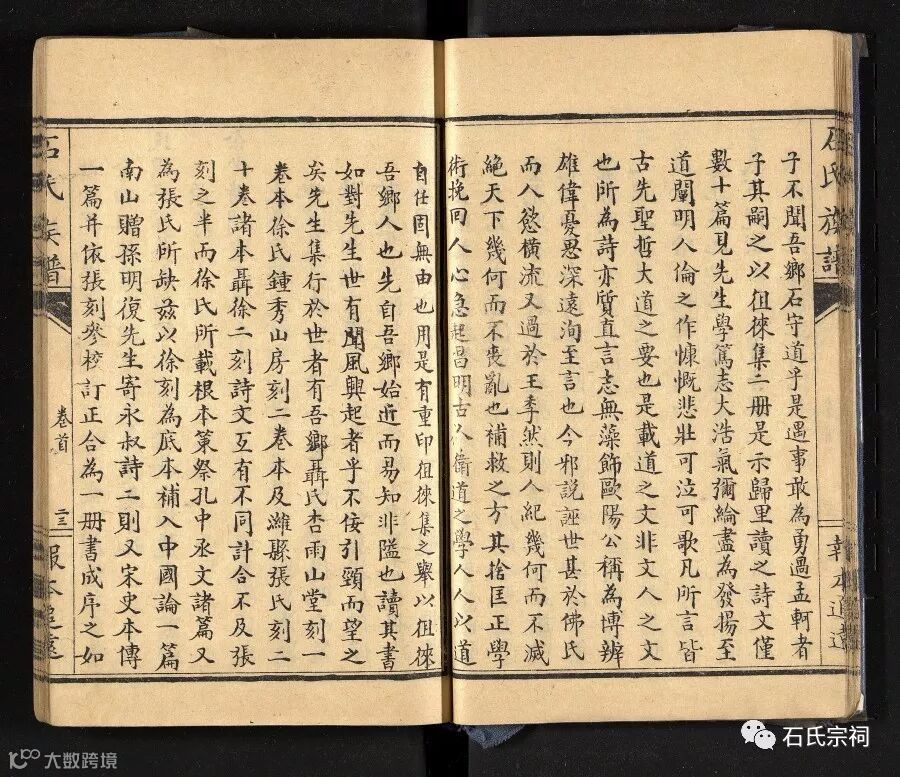 石氏族譜
報本追遠
子不聞吾鄉石守道乎是遇事敢為勇過孟軻者
子其嗣之以徂徠集二冊是示歸里讀之詩文僅
數十篇見先生學篤志大浩氣彌綸盡為發揚至
道闡明人倫之作慷慨悲壯可泣可歌凡所言皆
古先聖哲大道之要也是載道之文非文人之文
也所為詩亦質直言志無藻飾歐陽公稱為博辨
雄偉憂思深遠洵至言也今邪說誣世甚於佛氏
而人慾橫流又過於王季然則人紀幾何而不滅
絕天下幾何而不喪亂也補救之方其捨匡正學
術挽回人心急起昌明古人衛道之學人人以道
自任固無由也用是有重印徂徠集之舉以徂徠
吾鄉人也先自吾鄉始近而易知非隘也讀其書
如對先生世有聞風興起者乎不佞引頸而望之
矣先生集行於世者有吾鄉聶氏杏雨山堂刻一
卷本徐氏鍾秀山房刻二卷本及濰縣張氏刻二
十卷諸本聶徐二刻詩文互有不同計合不及張
刻之半而徐氏所載根本策祭孔中丞文諸篇又
為張氏所缺茲以徐刻為底本補入中國論一篇
南山贈孫明復先生寄永叔詩二則又宋史本傳
一篇并依張刻參校訂正合為一冊書成序之如
石氏族譜
卷首
二三
報本追遠
石氏宗祠
大数跨境